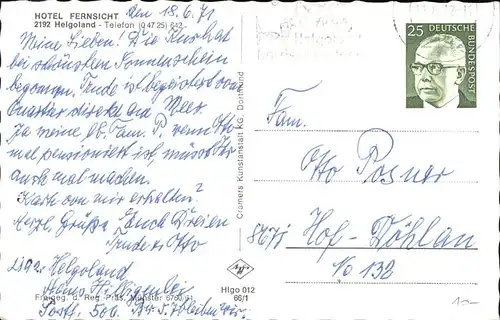 HOTEL FERNSICHT
2192 Helgoland - Telefon (0 47 25) 642
den 18.6.71
Meine Lieben! Die Kur hat
bei schönsten Sonnenschein
begonnen. Trude ist begeistert vom
Quartier direkt am Meer.
Ja meine lb. Fam. P. wenn Otto
mal pensioniert ist, müsst Ihr
auch mal machen.
Karte von mir erhalten?
Herzl. Grüße Euch Dreien
Trude + Otto
2192 Helgoland
Haus Hilligenlei
Postf. 500.
Freigeg. d. Reg. Präs. Münster
Cramers Kunstanstalt KG, Dortmund
Agfa
Hlgo 012
66/1
25
DEUTSCHE
BUNDESPOST
Helgoland
Fam.
Otto Posner
8671 Hof-Döhlau
No 132